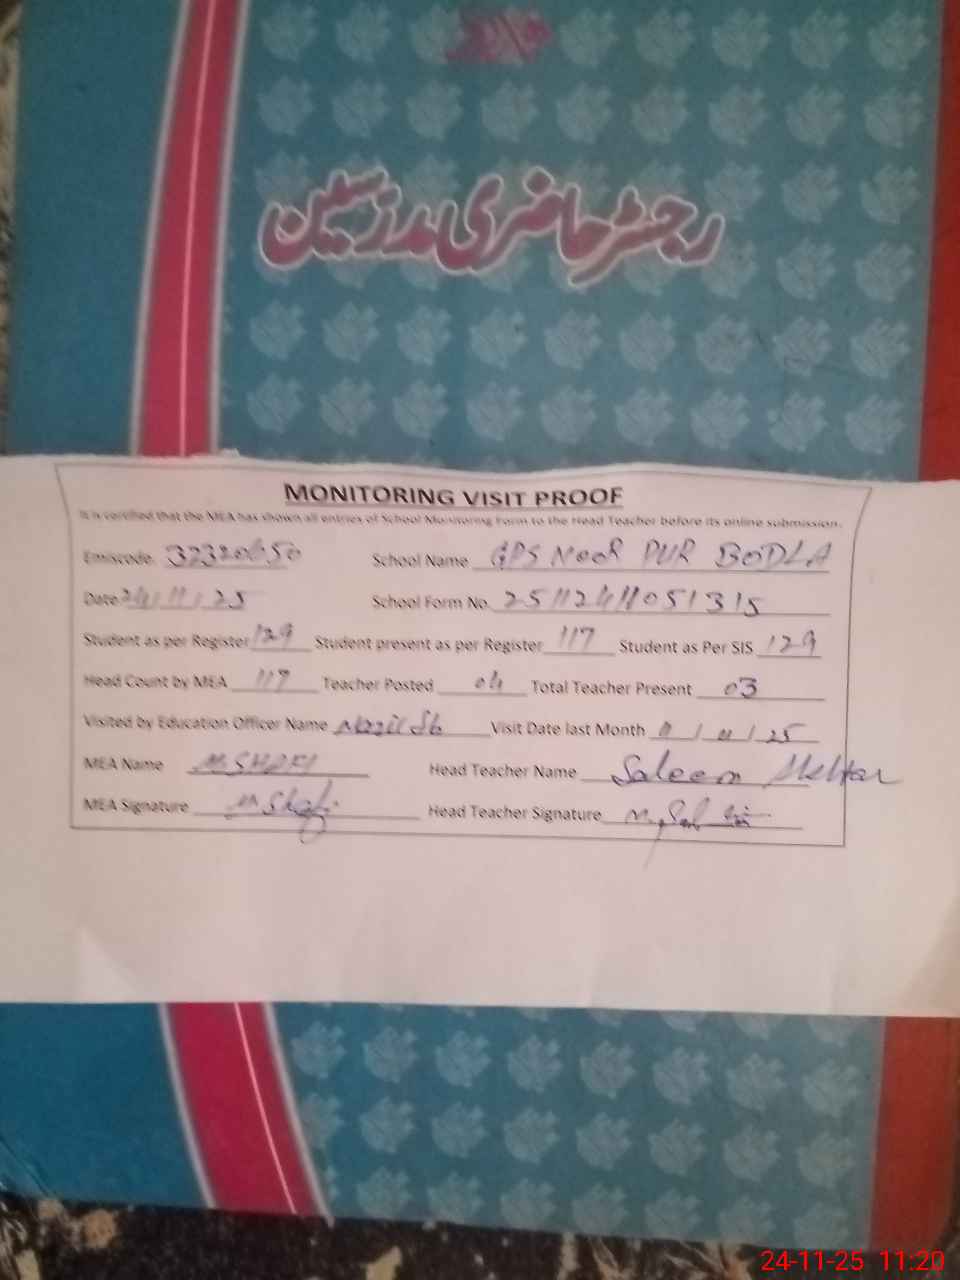 رجسٹر حاضری مدرسین
MONITORING VISIT PROOF
It is certified that the MEA has shown all entries of School Monitoring Form to the Head Teacher before its online submission.
Emiscode 32320050 School Name GPS NOOR PUR BODLA
Date 24/11/25 School Form No. 25112411051315
Student as per Register 129 Student present as per Register 117 Student as Per SIS 129
Head Count by MEA 117 Teacher Posted 04 Total Teacher Present 03
Visited by Education Officer Name Visit Date last Month 11/11/25
MEA Name M. SHAFI Head Teacher Name Saleem Akhtar
MEA Signature M Shafi Head Teacher Signature
24-11-25 11:20